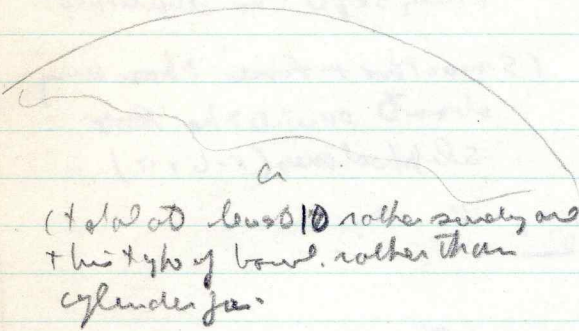 a
(total at least 10 rather sandy and
this type of bowl. rather than
cylinder jar.